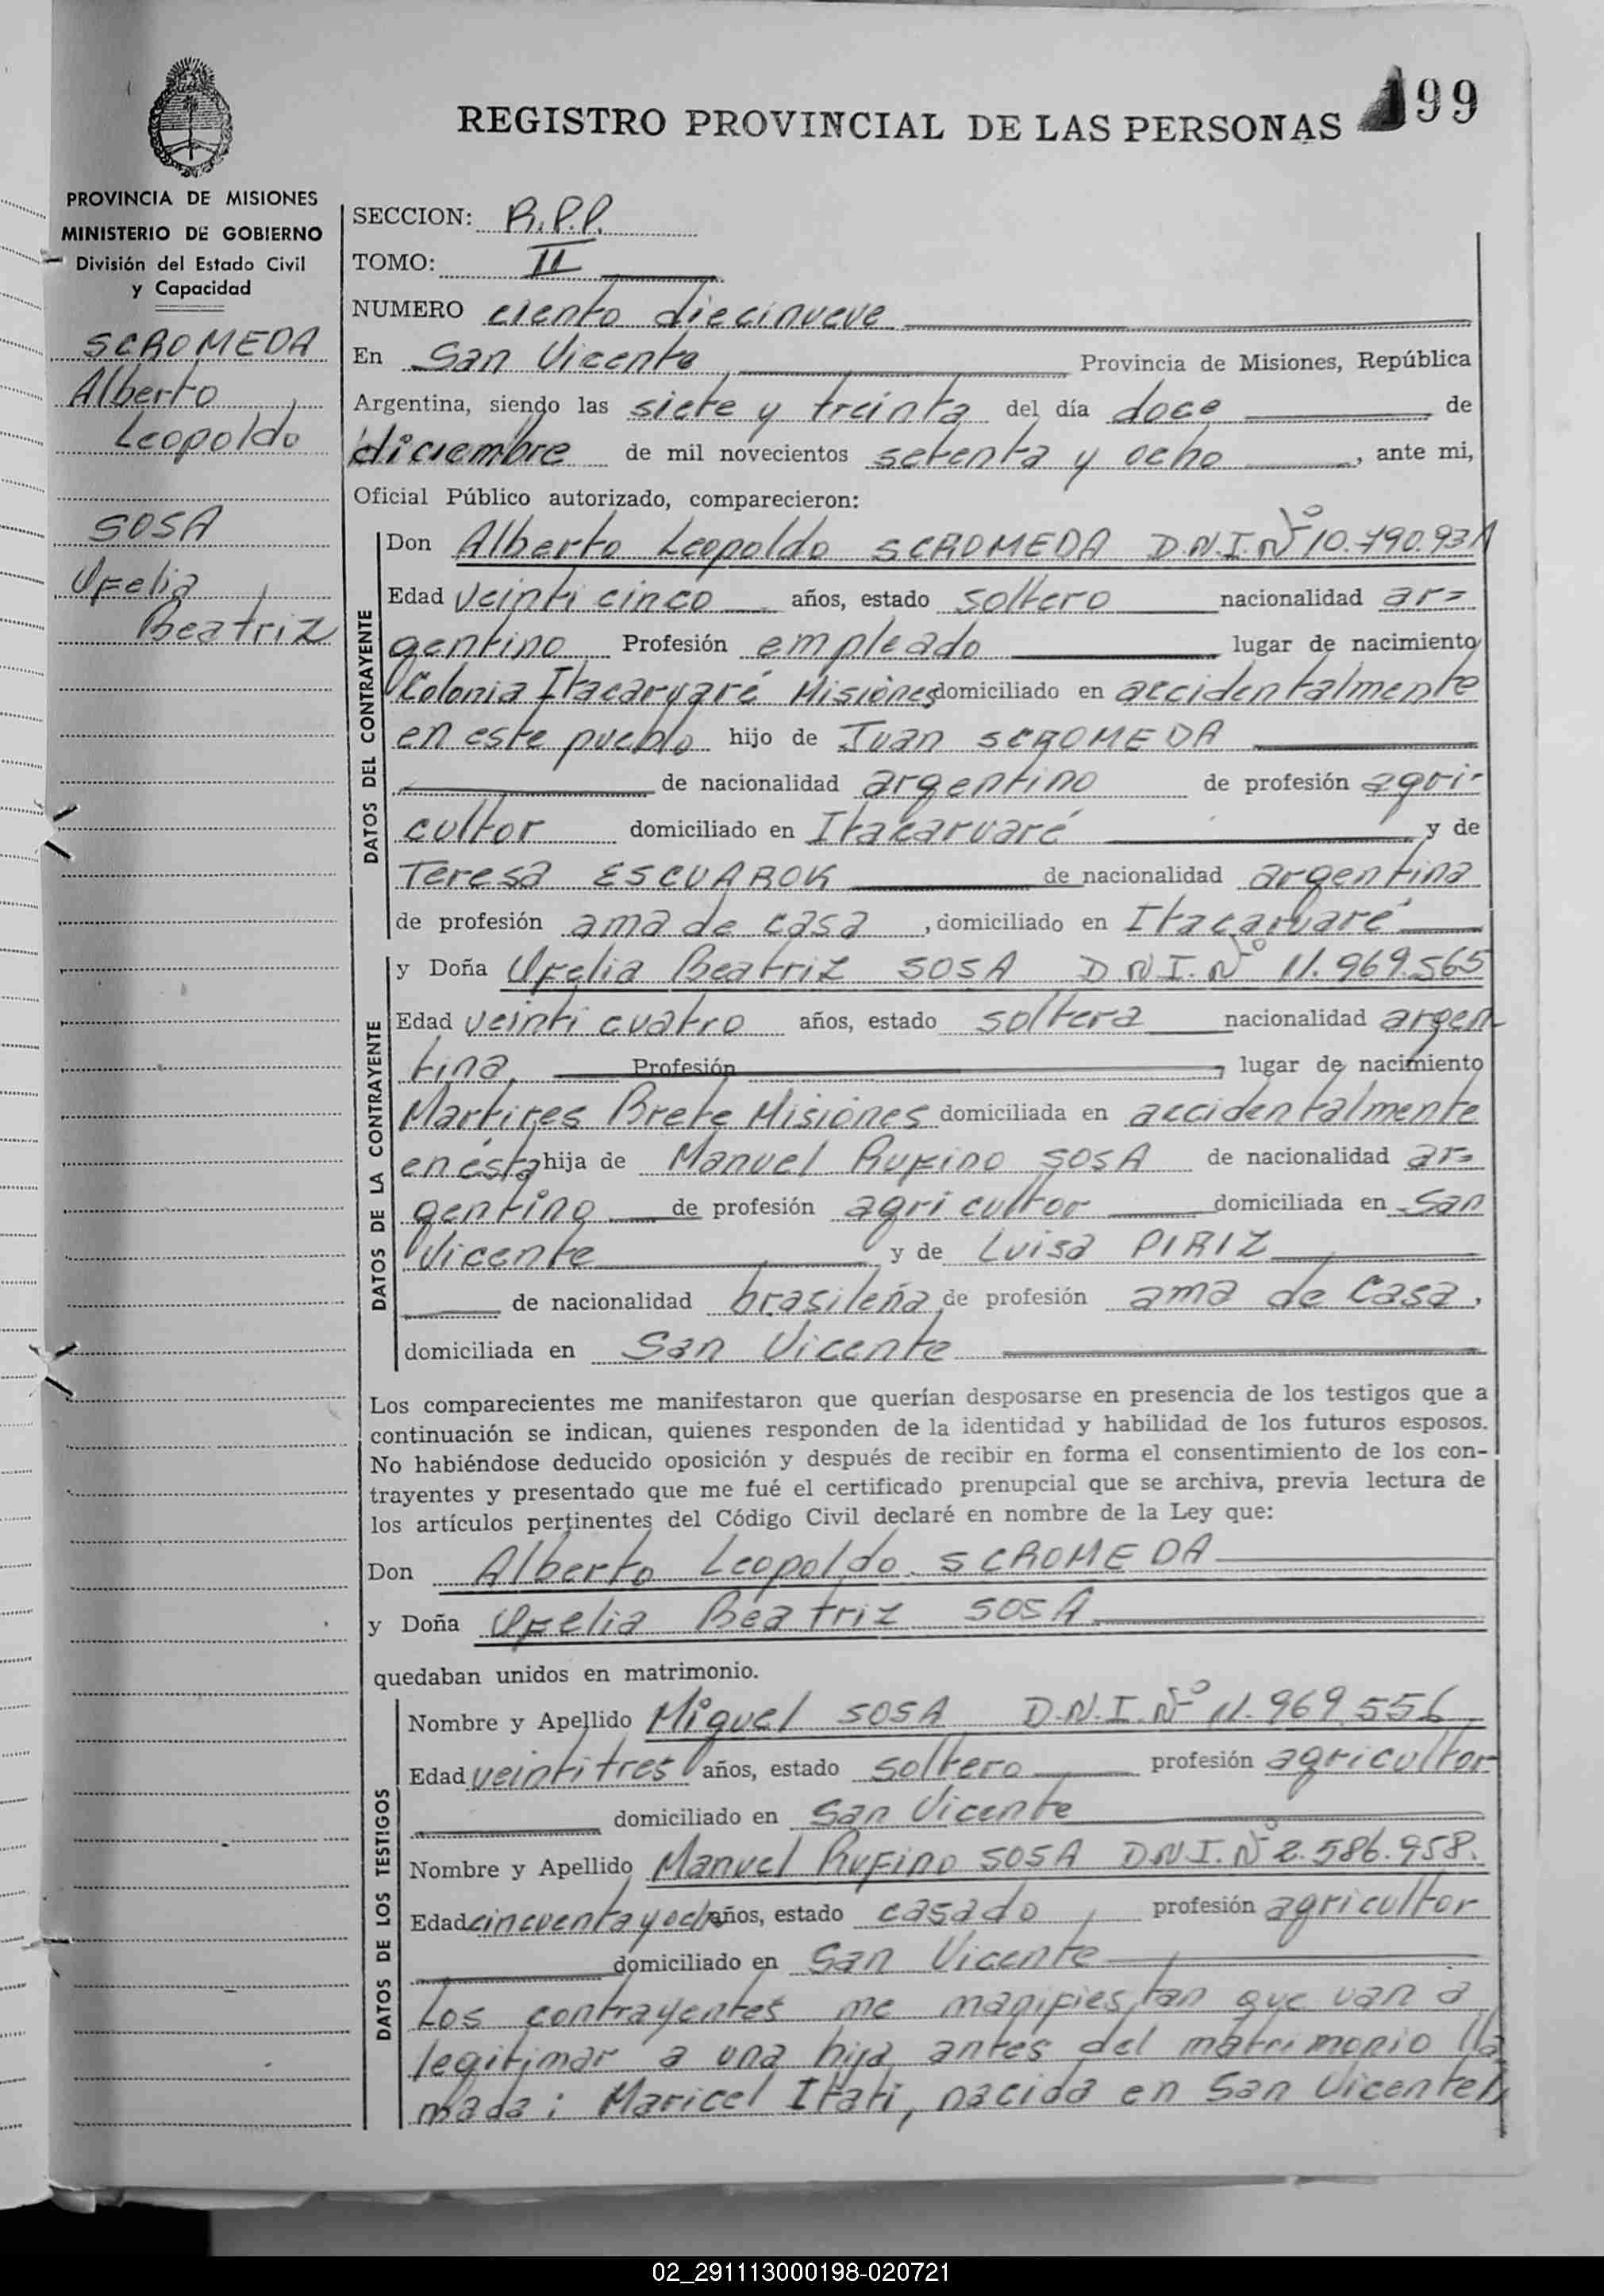 REGISTRO PROVINCIAL DE LAS PERSONAS 199
PROVINCIA DE MISIONES
MINISTERIO DE GOBIERNO
División del Estado Civil
y Capacidad
SCROMEDA
Alberto
Leopoldo
SOSA
Ofelia
Beatriz
SECCION: R.P.P.
TOMO: II
NUMERO ciento diecinueve
En San Vicente Provincia de Misiones, República
Argentina, siendo las siete y treinta del día doce de
diciembre de mil novecientos setenta y ocho, ante mi,
Oficial Público autorizado, comparecieron:
DATOS DEL CONTRAYENTE
Don Alberto Leopoldo SCROMEDA D.N.I. Nº 10.790.931
Edad veinti cinco años, estado soltero nacionalidad ar=
gentino Profesión empleado lugar de nacimiento
Colonia Itacaruaré Misiones domiciliado en accidentalmente
en este pueblo hijo de Juan SCROMEDA
de nacionalidad argentino de profesión agri-
cultor domiciliado en Itacaruaré y de
Teresa ESCUAROK de nacionalidad argentina
de profesión ama de casa, domiciliado en Itacaruaré
DATOS DE LA CONTRAYENTE
y Doña Ofelia Beatriz SOSA D.N.I. Nº 11.969.565
Edad veinti cuatro años, estado soltera nacionalidad argen
tina, Profesión, lugar de nacimiento
Martires Brete Misiones domiciliada en accidentalmente
en ésta hija de Manuel Rufino SOSA de nacionalidad ar=
gentino de profesión agricultor domiciliada en San
Vicente y de Luisa PIRIZ
de nacionalidad brasileña, de profesión ama de casa,
domiciliada en San Vicente
Los comparecientes me manifestaron que querían desposarse en presencia de los testigos que a
continuación se indican, quienes responden de la identidad y habilidad de los futuros esposos.
No habiéndose deducido oposición y después de recibir en forma el consentimiento de los con-
trayentes y presentado que me fué el certificado prenupcial que se archiva, previa lectura de
los artículos pertinentes del Código Civil declaré en nombre de la Ley que:
Don Alberto Leopoldo SCROMEDA
y Doña Ofelia Beatriz SOSA
quedaban unidos en matrimonio.
DATOS DE LOS TESTIGOS
Nombre y Apellido Miguel SOSA D.N.I. Nº 11.969.556
Edad veintitres años, estado soltero profesión agricultor
domiciliado en San Vicente
Nombre y Apellido Manuel Rufino SOSA D.N.I. Nº 2.586.958.
Edad cincuenta y ocho años, estado casado, profesión agricultor
domiciliado en San Vicente
Los contrayentes me manifiestan que van a
legitimar a una hija antes del matrimonio lla
mada: Maricel Itati, nacida en San Vicente,
02_291113000198-020721